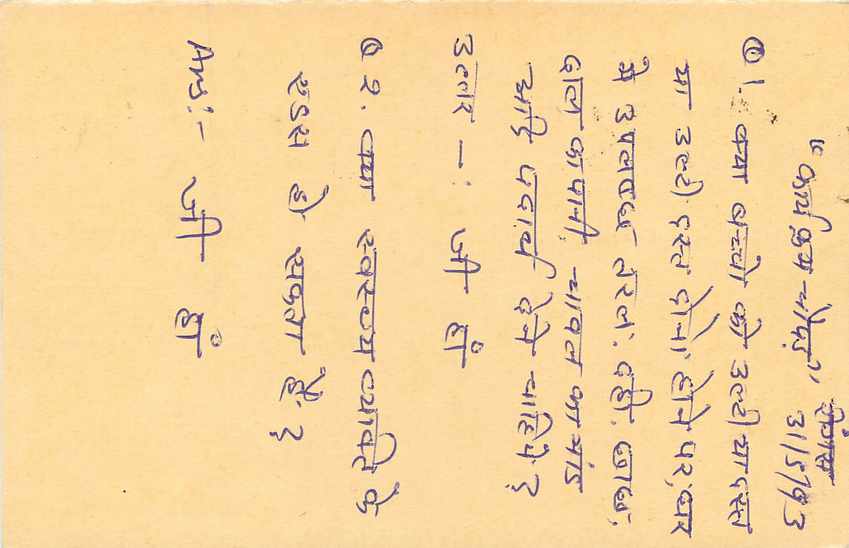 "कार्यक्रम चौपड़"
31/5/93
Q 1. क्या बच्चो को उल्टी या दस्त
या उल्टी दस्त दोनों होने पर, घर
मे उपलब्ध तरल: दही. छाछ,
दाल का पानी, चावल का मांड
आदि पदार्थ देने चाहिये ?
उत्तर -: जी हाँ
Q २. क्या स्वस्थ्य व्यक्ति के
एडस हो सकता हैं ?
Ans:- जी हाँ